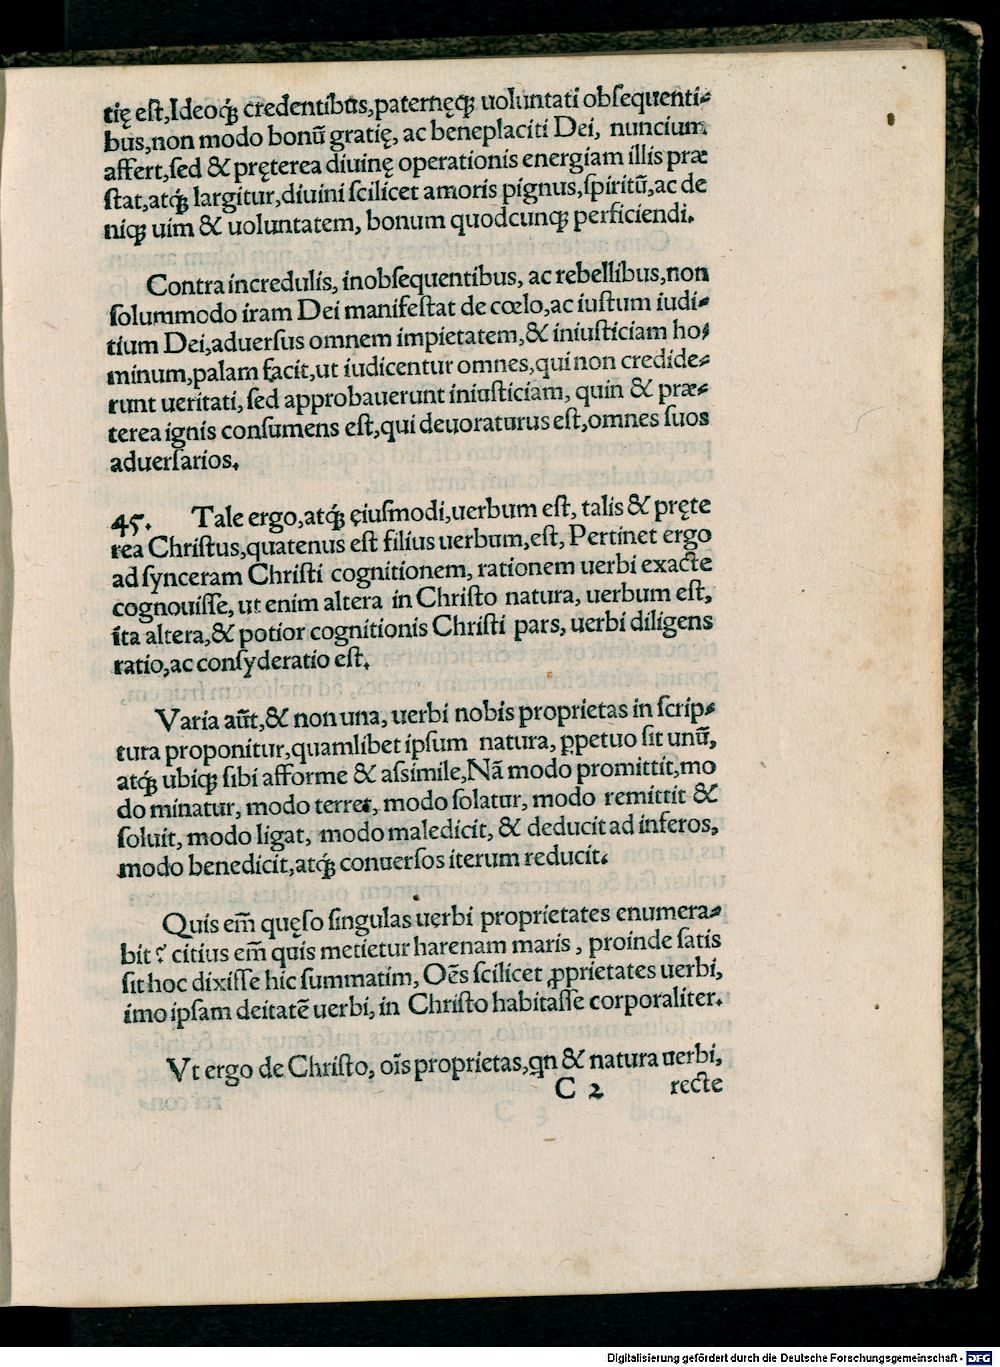 tię est,Ideoq́ꝫ credentibus,paternęqꝫ uoluntati obsequenti⸗
bus,non modo bonū gratię, ac beneplaciti Dei, nuncium
affert,sed & pręterea diuinę operationis energiam illis præ
stat,atq́ꝫ largitur,diuini scilicet amoris pignus,spiritū,ac de
niqꝫ uim & uoluntatem, bonum quodcunqꝫ perficiendi.
Contra incredulis, inobsequentibus, ac rebellibus,non
solummodo iram Dei manifestat de cœlo,ac iustum iudi⸗
tium Dei,aduersus omnem impietatem,& iniusticiam ho⸗
minum,palam facit,ut iudicentur omnes,qui non credide⸗
runt ueritati, sed approbauerunt iniusticiam, quin & præ⸗
terea ignis consumens est,qui deuoraturus est,omnes suos
aduersarios.
45. Tale ergo,atq́ꝫ ęiusmodi,uerbum est, talis & pręte
rea Christus,quatenus est filius uerbum,est, Pertinet ergo
ad synceram Christi cognitionem, rationem uerbi exacte
cognouisse, ut enim altera in Christo natura, uerbum est,
ita altera,& potior cognitionis Christi pars, uerbi diligens
ratio,ac consyderatio est.
Varia aūt,& non una, uerbi nobis proprietas in scrip⸗
tura proponitur,quamlibet ipsum natura, ꝑpetuo sit unū,
atq́ꝫ ubiqꝫ sibi afforme & assimile,Nā modo promittit,mo
do minatur, modo terret, modo solatur, modo remittit &
soluit, modo ligat, modo maledicit, & deducit ad inferos,
modo benedicit,atq́ꝫ conuersos iterum reducit.
Quis em̄ quęso singulas uerbi proprietates enumera⸗
bit? citius em̄ quis metietur harenam maris, proinde satis
sit hoc dixisse hic summatim, Oēs scilicet ꝓprietates uerbi,
imo ipsam deitatē uerbi, in Christo habitasse corporaliter.
Vt ergo de Christo, oīs proprietas,qn & natura uerbi,
C 2 recte
Digitalisierung gefördert durch die Deutsche Forschungsgemeinschaft - DFG